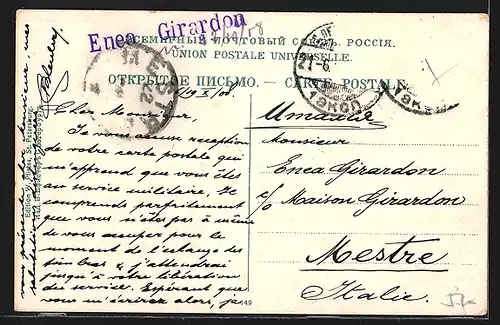 Enea Girardon
ВСЕМИРНЫЙ ПОЧТОВЫЙ СОЮЗЪ. РОССІЯ.
UNION POSTALE UNIVERSELLE.
ОТКРЫТОЕ ПИСЬМО. — CARTE POSTALE.
Cher Monsieur,
Je vous accuse reception
de votre carte postale qui
m'apprend que vous êtes
au service militaire. Je
comprends parfaitement
que vous n'êtes pas à même
de vous occuper pour le
moment de l'échange des
timbres & j'attendrai
jusqu'à votre libération
du service. Espérant que
vous m'écrirez alors, je
vous présente, cher monsieur, mes
salutations
Monsieur
Enea Girardon
c/o Maison Girardon
Mestre
Italie.
149